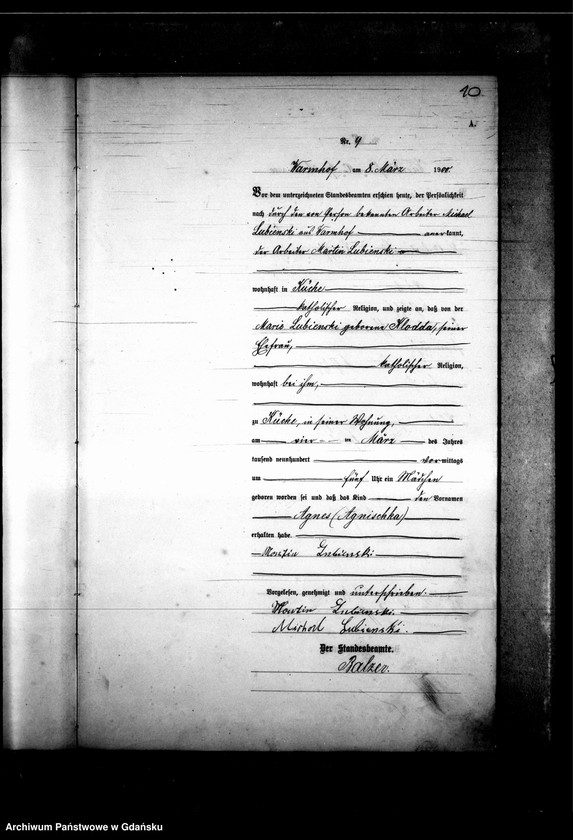 10
A.
Nr. 9
Warmhof am 8. März 1900.
Vor dem unterzeichneten Standesbeamten erschien heute, der Persönlichkeit
nach durch den von Person bekannten Arbeiter Michael
Lubienski aus Warmhof anerkannt,
der Arbeiter Martin Lubienski
wohnhaft in Küche
katholischer Religion, und zeigte an, daß von der
Marie Lubienski geborene Klodda, seiner
Ehefrau,
katholischer Religion,
wohnhaft bei ihm,
zu Küche, in seiner Wohnung,
am vier ten März des Jahres
tausend neunhundert vormittags
um fünf Uhr ein Mädchen
geboren worden sei und daß das Kind den Vornamen
Agnes (Agnischka)
erhalten habe.
Martin Lubienski
Vorgelesen, genehmigt und unterschrieben.
Martin Lubienski.
Lubienski.
Der Standesbeamte.
Balzer.
Archiwum Państwowe w Gdańsku